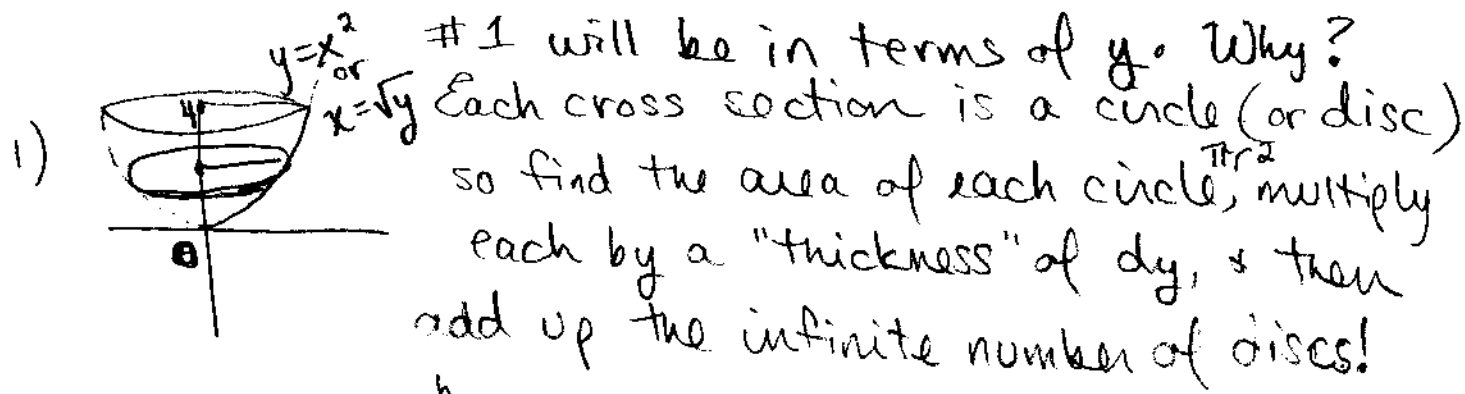 y=x² #1 will be in terms of y. Why?
or
x=√y Each cross section is a circle (or disc)
4
1) πr²
so find the area of each circle, multiply
0 each by a "thickness" of dy, & then
add up the infinite number of discs!